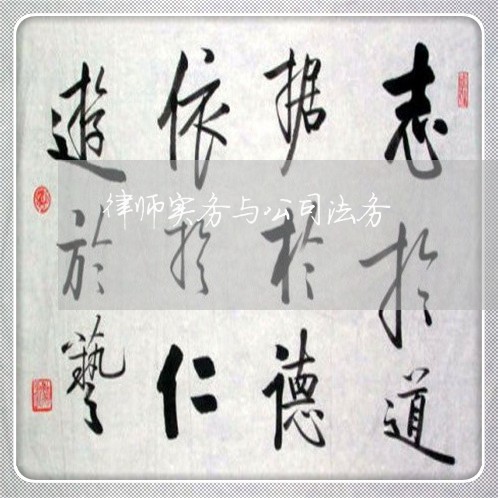 志於道
据於德
依於仁
遊於藝
律师实务与公司法务